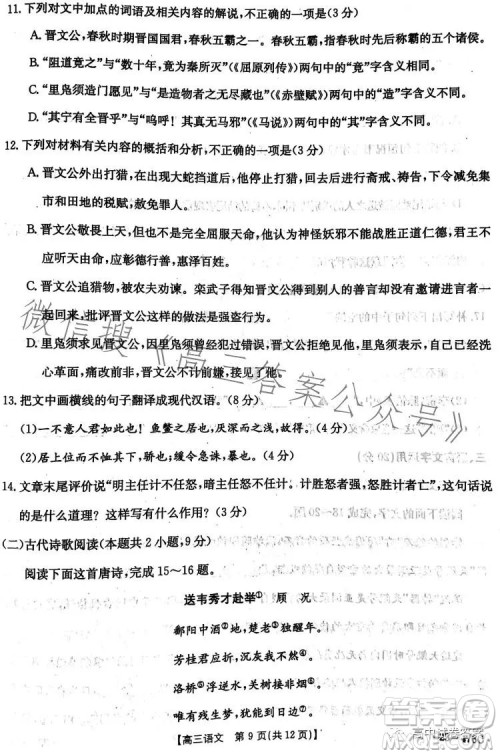 11. 下列对文中加点的词语及相关内容的解说,不正确的一项是(3分)
A. 晋文公,春秋时期晋国国君,春秋五霸之一。春秋五霸指春秋时期先后称霸的5个诸侯。
B. “阻道竟之”与“数十年,竟为秦所灭”(《屈原列传》)两句中的“竟”字含义相同。
C. “里凫须造门愿见”与“是造物者之无尽藏也”(《赤壁赋》)两句中的“造”字含义不同。
D. “其宁有全晋乎”与“呜呼!其真无马邪”(《马说》)两句中的“其”字含义不同。
12. 下列对材料有关内容的概括和分析,不正确的一项是(3分)
A. 晋文公外出打猎,在出现大蛇挡道后,停止打猎、返回宗庙进行斋戒、祷告,下令减少关
市和田地的税赋,赦免罪犯。
B. 晋文公敬畏上天,但是不完全屈服天命,认为神怪妖邪不能胜过正道仁德,君王不
应听天由命,应彰德行善,惠泽百姓。
C. 晋文公追猎物,被农夫劝谏。栾武子得知晋文公得到别人的善言却没有邀请进言者一
起来,批评晋文公这样的做法是强盗行为。
D. 里凫须求见晋文公,因有旧怨,晋文公拒绝见他,但里凫须真诚表示自己已经洗心
革面,痛改前非,晋文公被打动,接见了他。
13. 把文中画横线的句子翻译成现代汉语。(8分)
(1)一不意人君如此也!鱼鳖之居也,厌深而之浅,故得。(4分)
(2)居上位而不恤其下,骄也;缓令急诛,暴也。(4分)
14. 文章末尾评价说“明主任计不任怒,暗主任怒不任计。计胜怒者强,怒胜计者亡”,这句话说
的是什么道理?这样写有什么作用?(3分)
(二)古代诗歌阅读(本题共2小题,9分)
阅读下面这首唐诗,完成15~16题。
送韦秀才赴举① 顾 况
鄱阳中酒②地,楚老③独醒年。
芳桂君应折,沉灰我不然④。
洛桥⑤浮逆水,关树接非烟⑥。
唯有残生梦,犹能到日边。
【高三语文 第9页(共12页)】
微信搜《高三答案公众号》
高中试卷答案